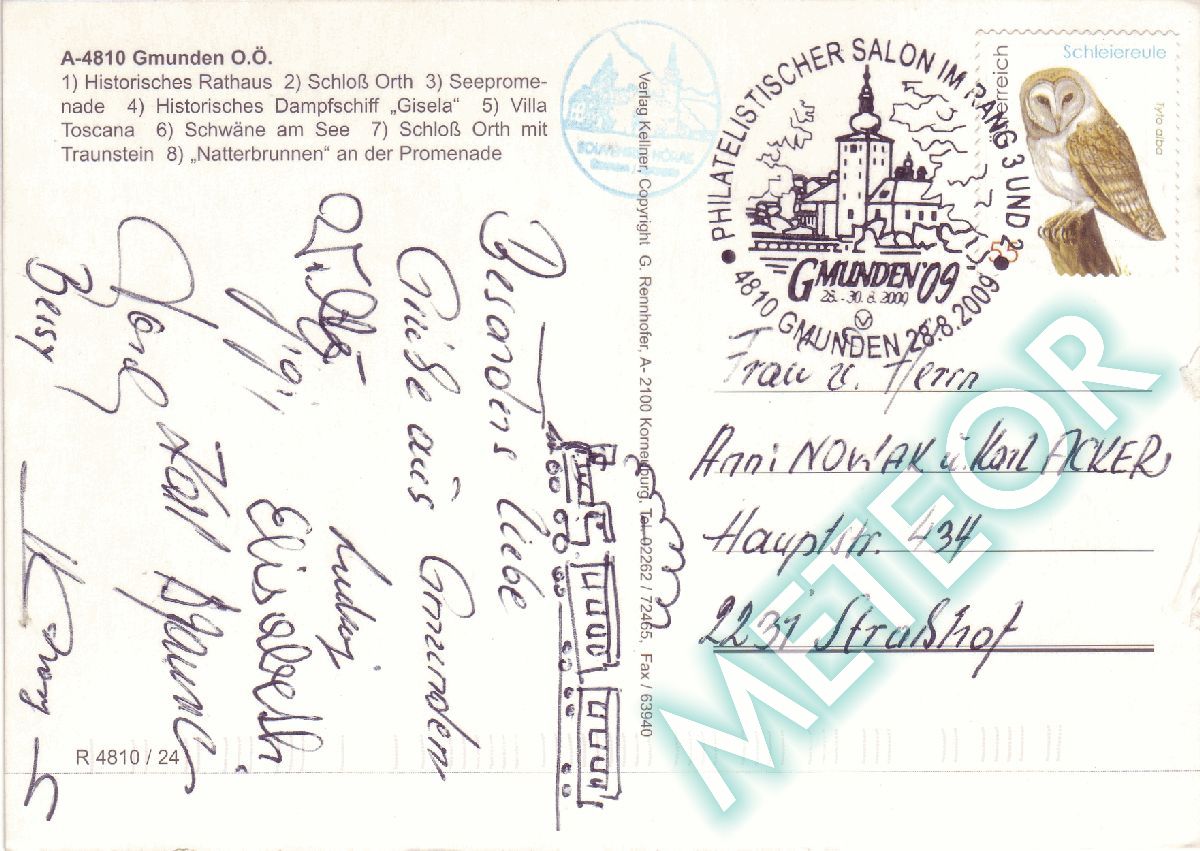 A-4810 Gmunden O.Ö.
1) Historisches Rathaus 2) Schloß Orth 3) Seeprome-
nade 4) Historisches Dampfschiff „Gisela“ 5) Villa
Toscana 6) Schwäne am See 7) Schloß Orth mit
Traunstein 8) „Natterbrunnen“ an der Promenade
Besonders liebe
Grüße aus Gmunden
Ludwig
Elisabeth
R 4810 / 24
Verlag Kellner, Copyright G. Rennhofer, A- 2100 Korneuburg, Tel. 02262 / 72465, Fax / 63940
PHILATELISTISCHER SALON IM RANG 3 UND 2
GMUNDEN'09
28.-30.8.2009
4810 GMUNDEN 28.8.2009
Österreich
Schleiereule
Tyto alba
55
Frau u. Herrn
Anni NOWAK u. Karl ACKER
Hauptstr. 434
2231 Straßhof
METEOR